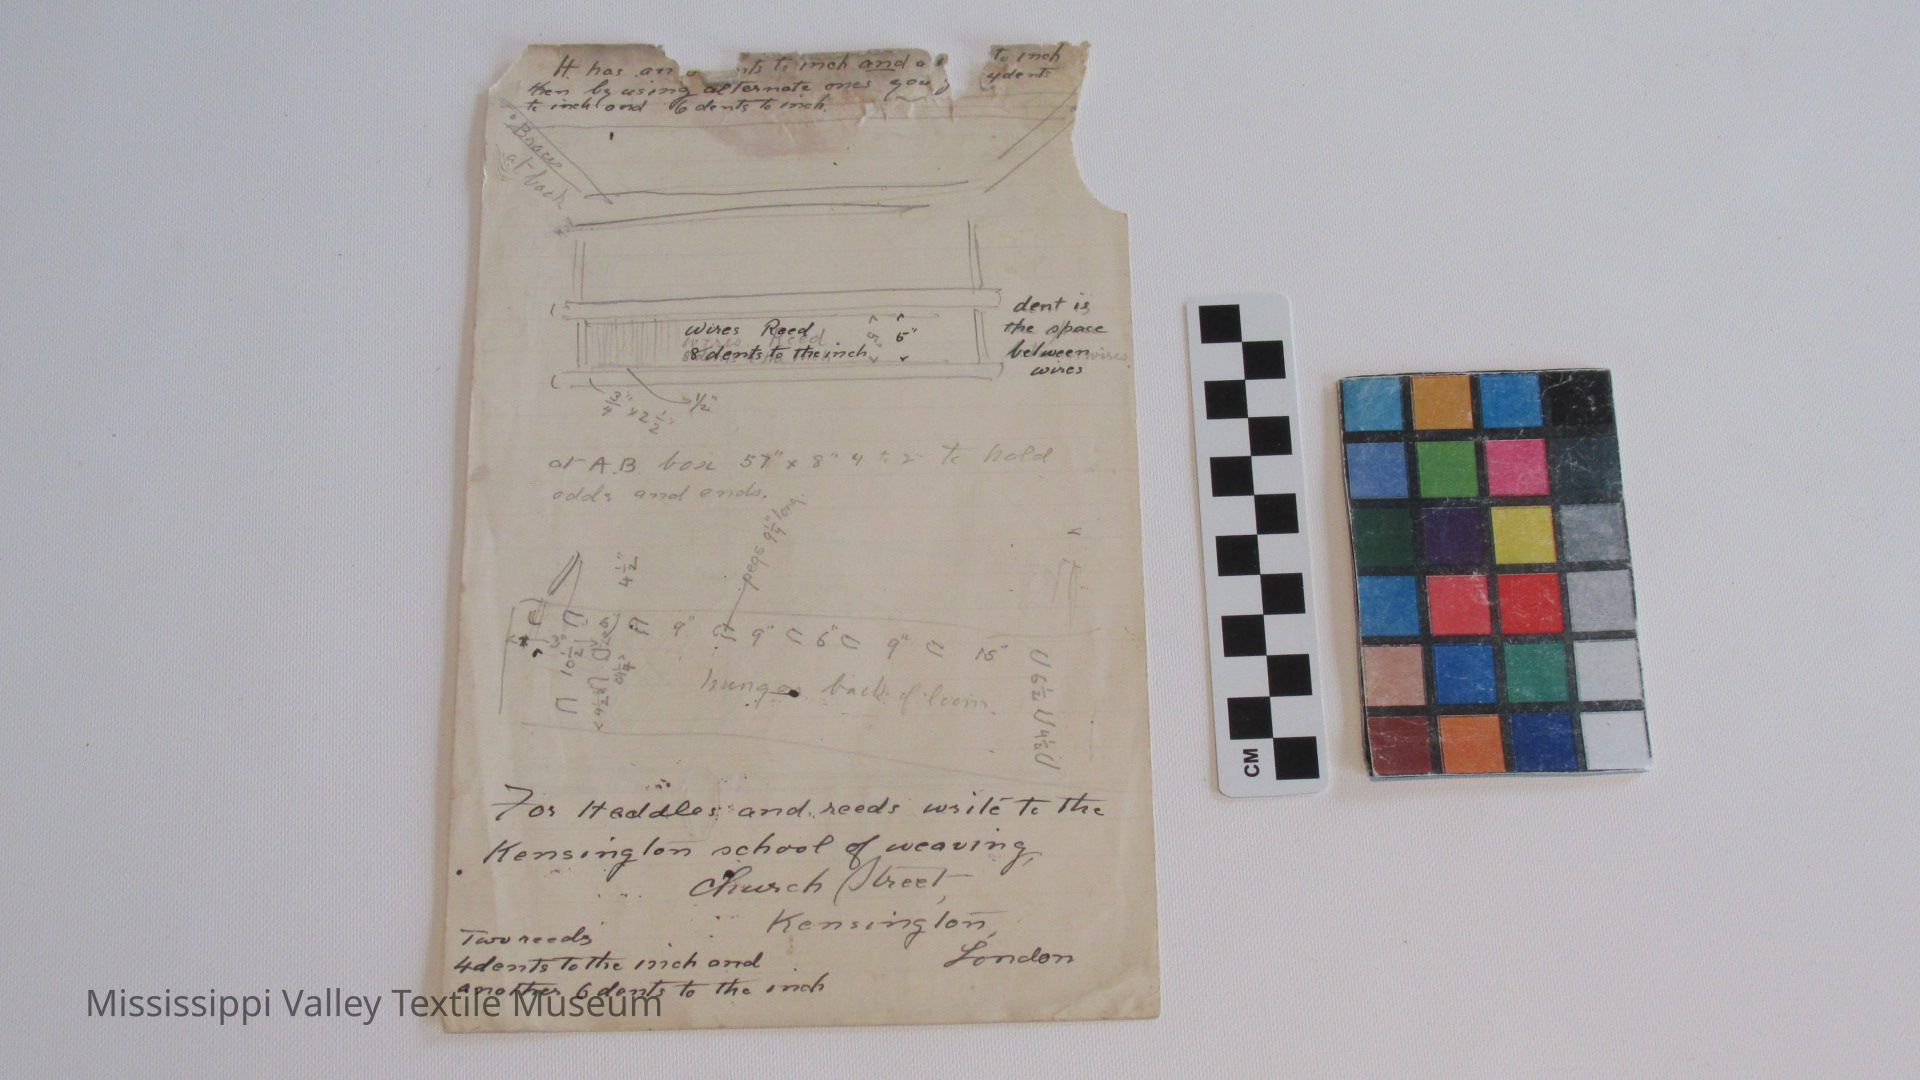 It has an nts to inch and to inch
then by using alternate ones you 4 dents
to inch and 6 dents to inch.
Braces
at back
wires Reed
8 dents to the inch
5"
dent is
the space
between wires
wires
3/4" x 2 1/2"
1/2"
at A.B box 57" x 8" to hold
odds and ends.
pegs 9 1/4" long.
4 1/2"
9" 9" 6" 9" 15"
3"
10 1/2
4 1/2
6 1/2 4 1/2
hung back of loom.
For Heddles and reeds write to the
Kensington school of weaving,
Church Street,
Kensington,
London
Two reeds
4 dents to the inch and
another 6 dents to the inch
Mississippi Valley Textile Museum
CM